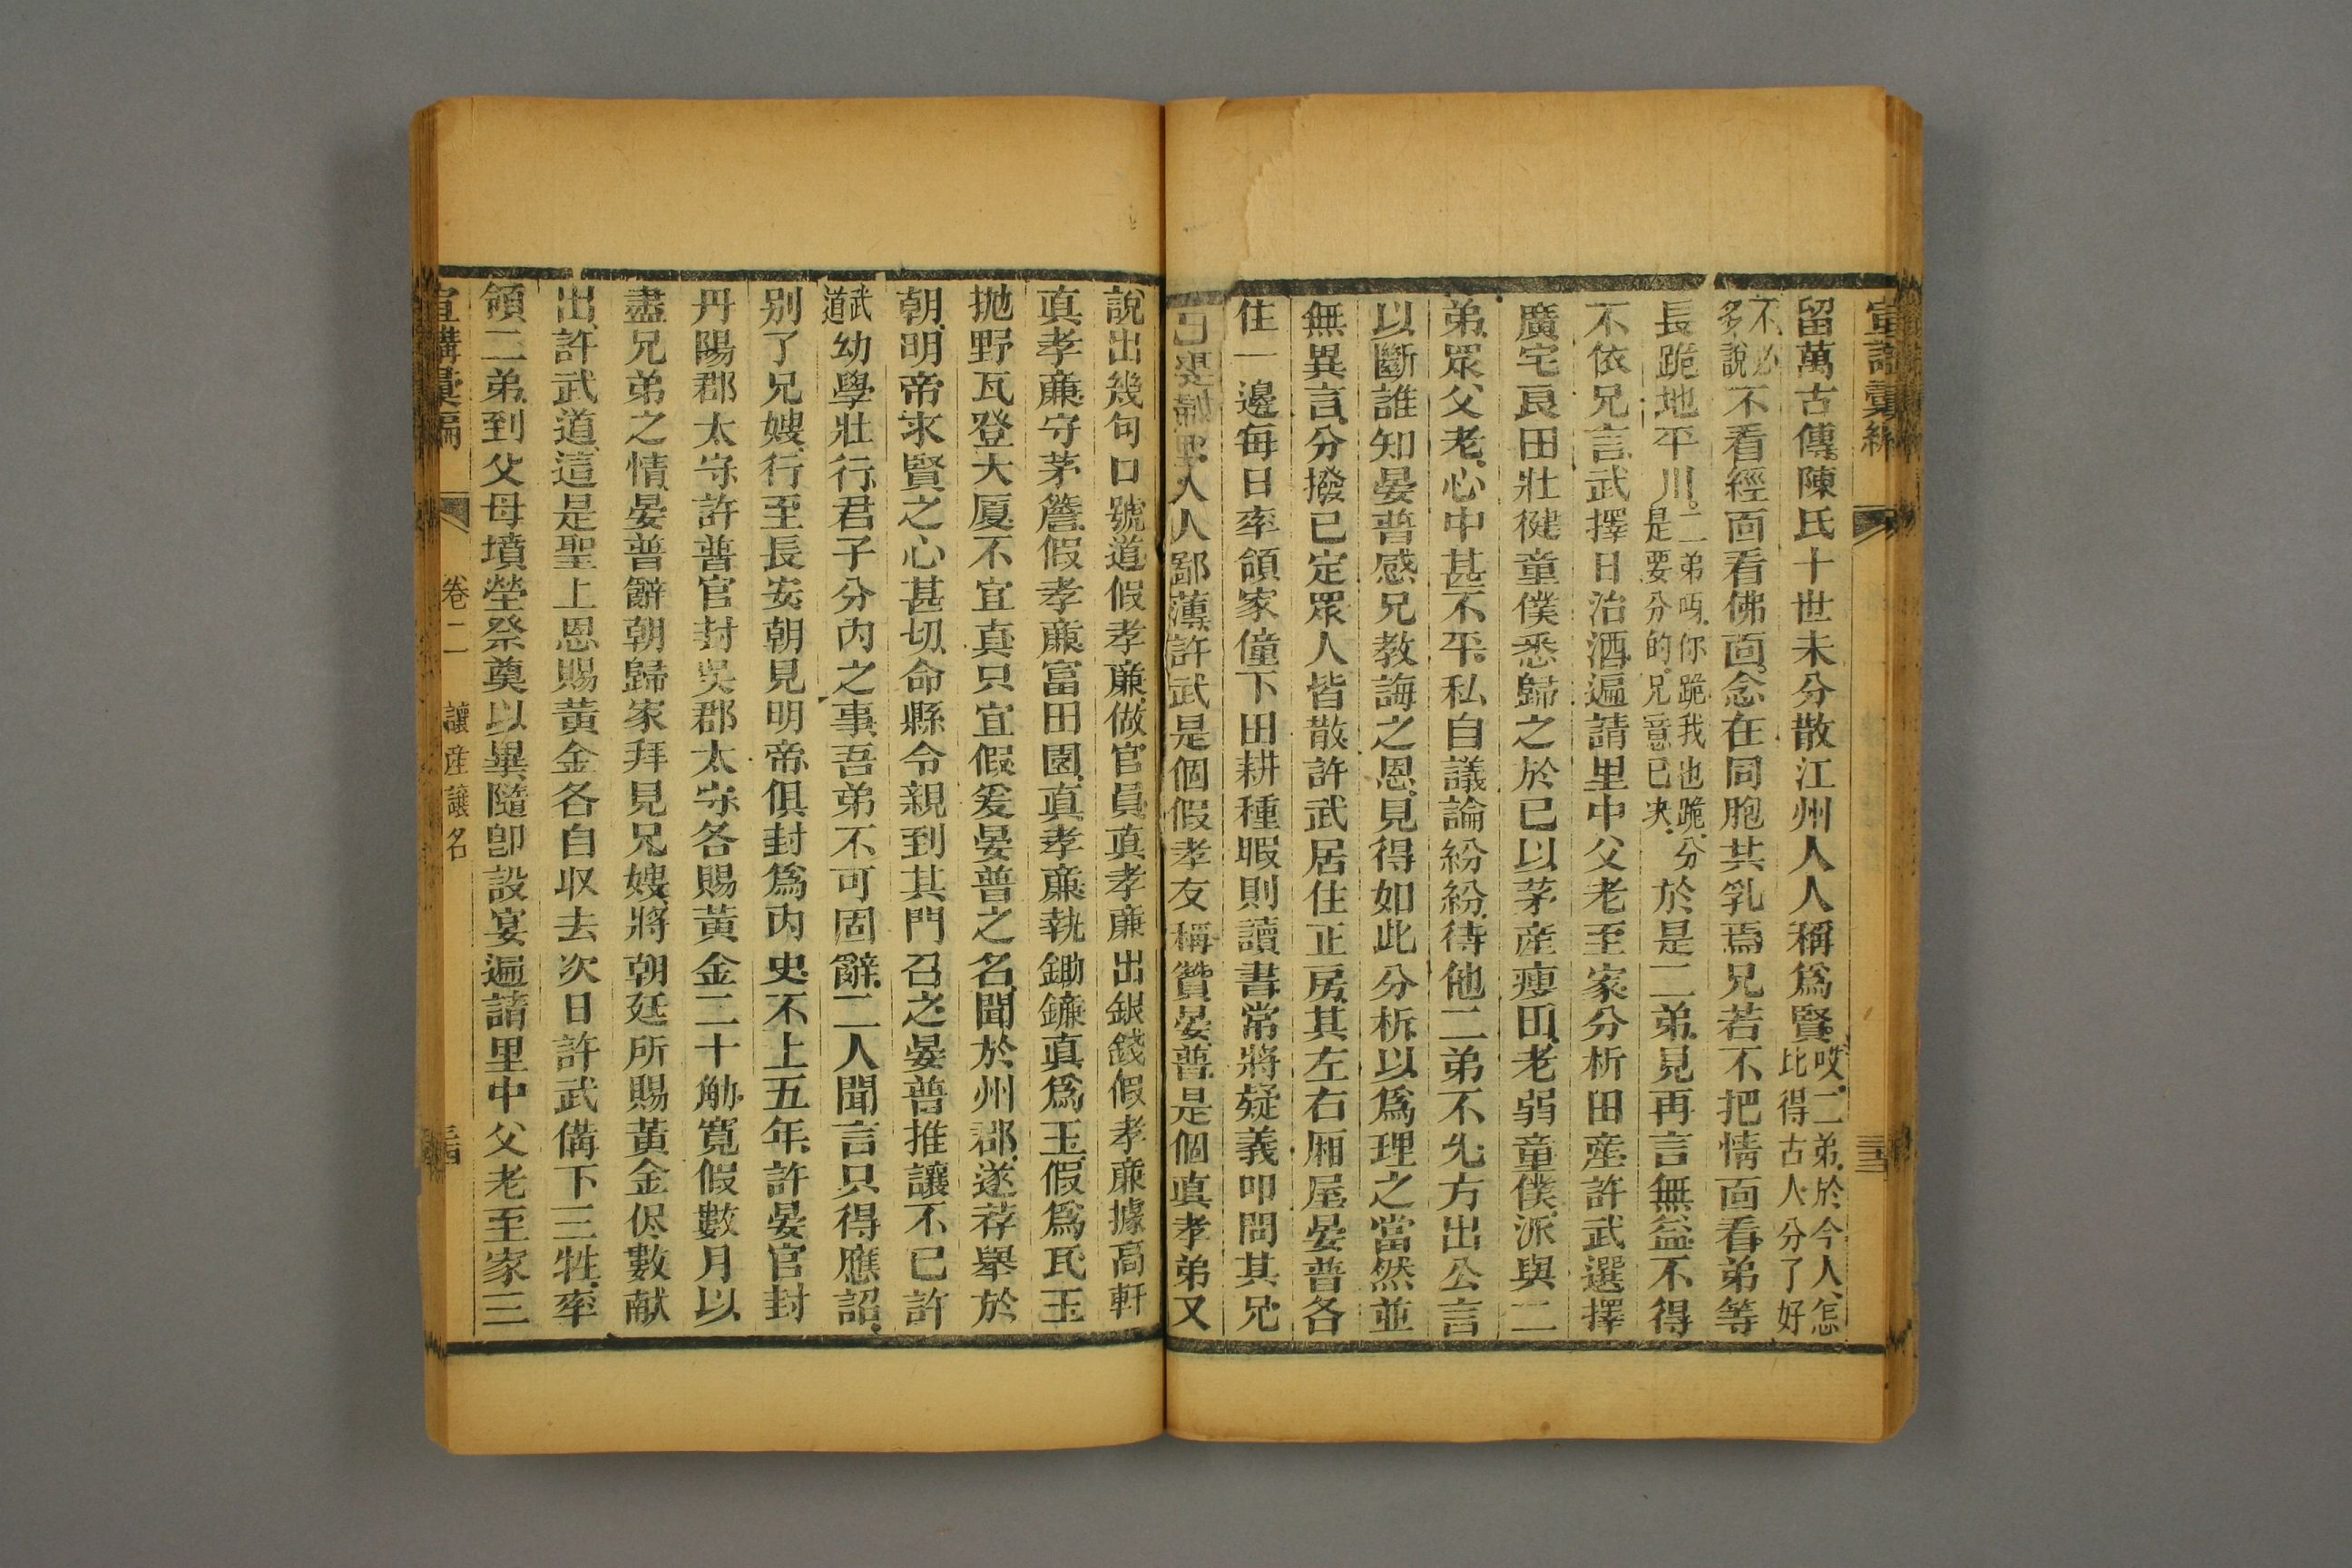 宣講彙編
三三
留萬古傳陳氏十世未分散江州人人稱爲賢哎二弟於今人怎比得古人分了好
不必多說不看經面看佛面念在同胞共乳焉兄若不把情面看弟等
長跪地平川二弟呀你跪我也跪分是要分的兄意已决於是二弟見再言無益不得
不依兄言武擇日治酒遍請里中父老至家分析田產許武選擇
廣宅良田壯健童僕悉歸之於已以茅產瘦田老弱童僕派與二
弟眾父老心中甚不平私自議論紛紛待他二弟不允方出公言
以斷誰知晏普感兄教誨之恩見得如此分析以爲理之當然並
無異言分撥已定眾人皆散許武居住正房其左右厢屋晏普各
住一邊每日率領家僮下田耕種暇則讀書常將疑義叩問其兄
人人鄙薄許武是個假孝友稱贊晏普是個真孝弟又
說出幾句口號道假孝廉做官員真孝廉出銀錢假孝廉據高軒
真孝廉守茅簷假孝廉富田園真孝廉執鋤鐮真爲玉假爲瓦玉
抛野瓦登大厦不宜真只宜假爰晏普之名聞於州郡遂荐舉於
朝明帝求賢之心甚切命縣令親到其門召之晏普推讓不已許
武道幼學壯行君子分內之事吾弟不可固辭二人聞言只得應詔
別了兄嫂行至長安朝見明帝俱封爲內史不上五年許晏官封
丹陽郡太守許普官封吳郡太守各賜黃金二十觔寬假數月以
盡兄弟之情晏普辭朝歸家拜見兄嫂將朝廷所賜黃金侭數献
出許武道這是聖上恩賜黃金各自収去次日許武俻下三牲率
領二弟到父母墳塋祭奠以畢隨卽設宴遍請里中父老至家三
宣講彙編 卷二 讓產讓名 三四